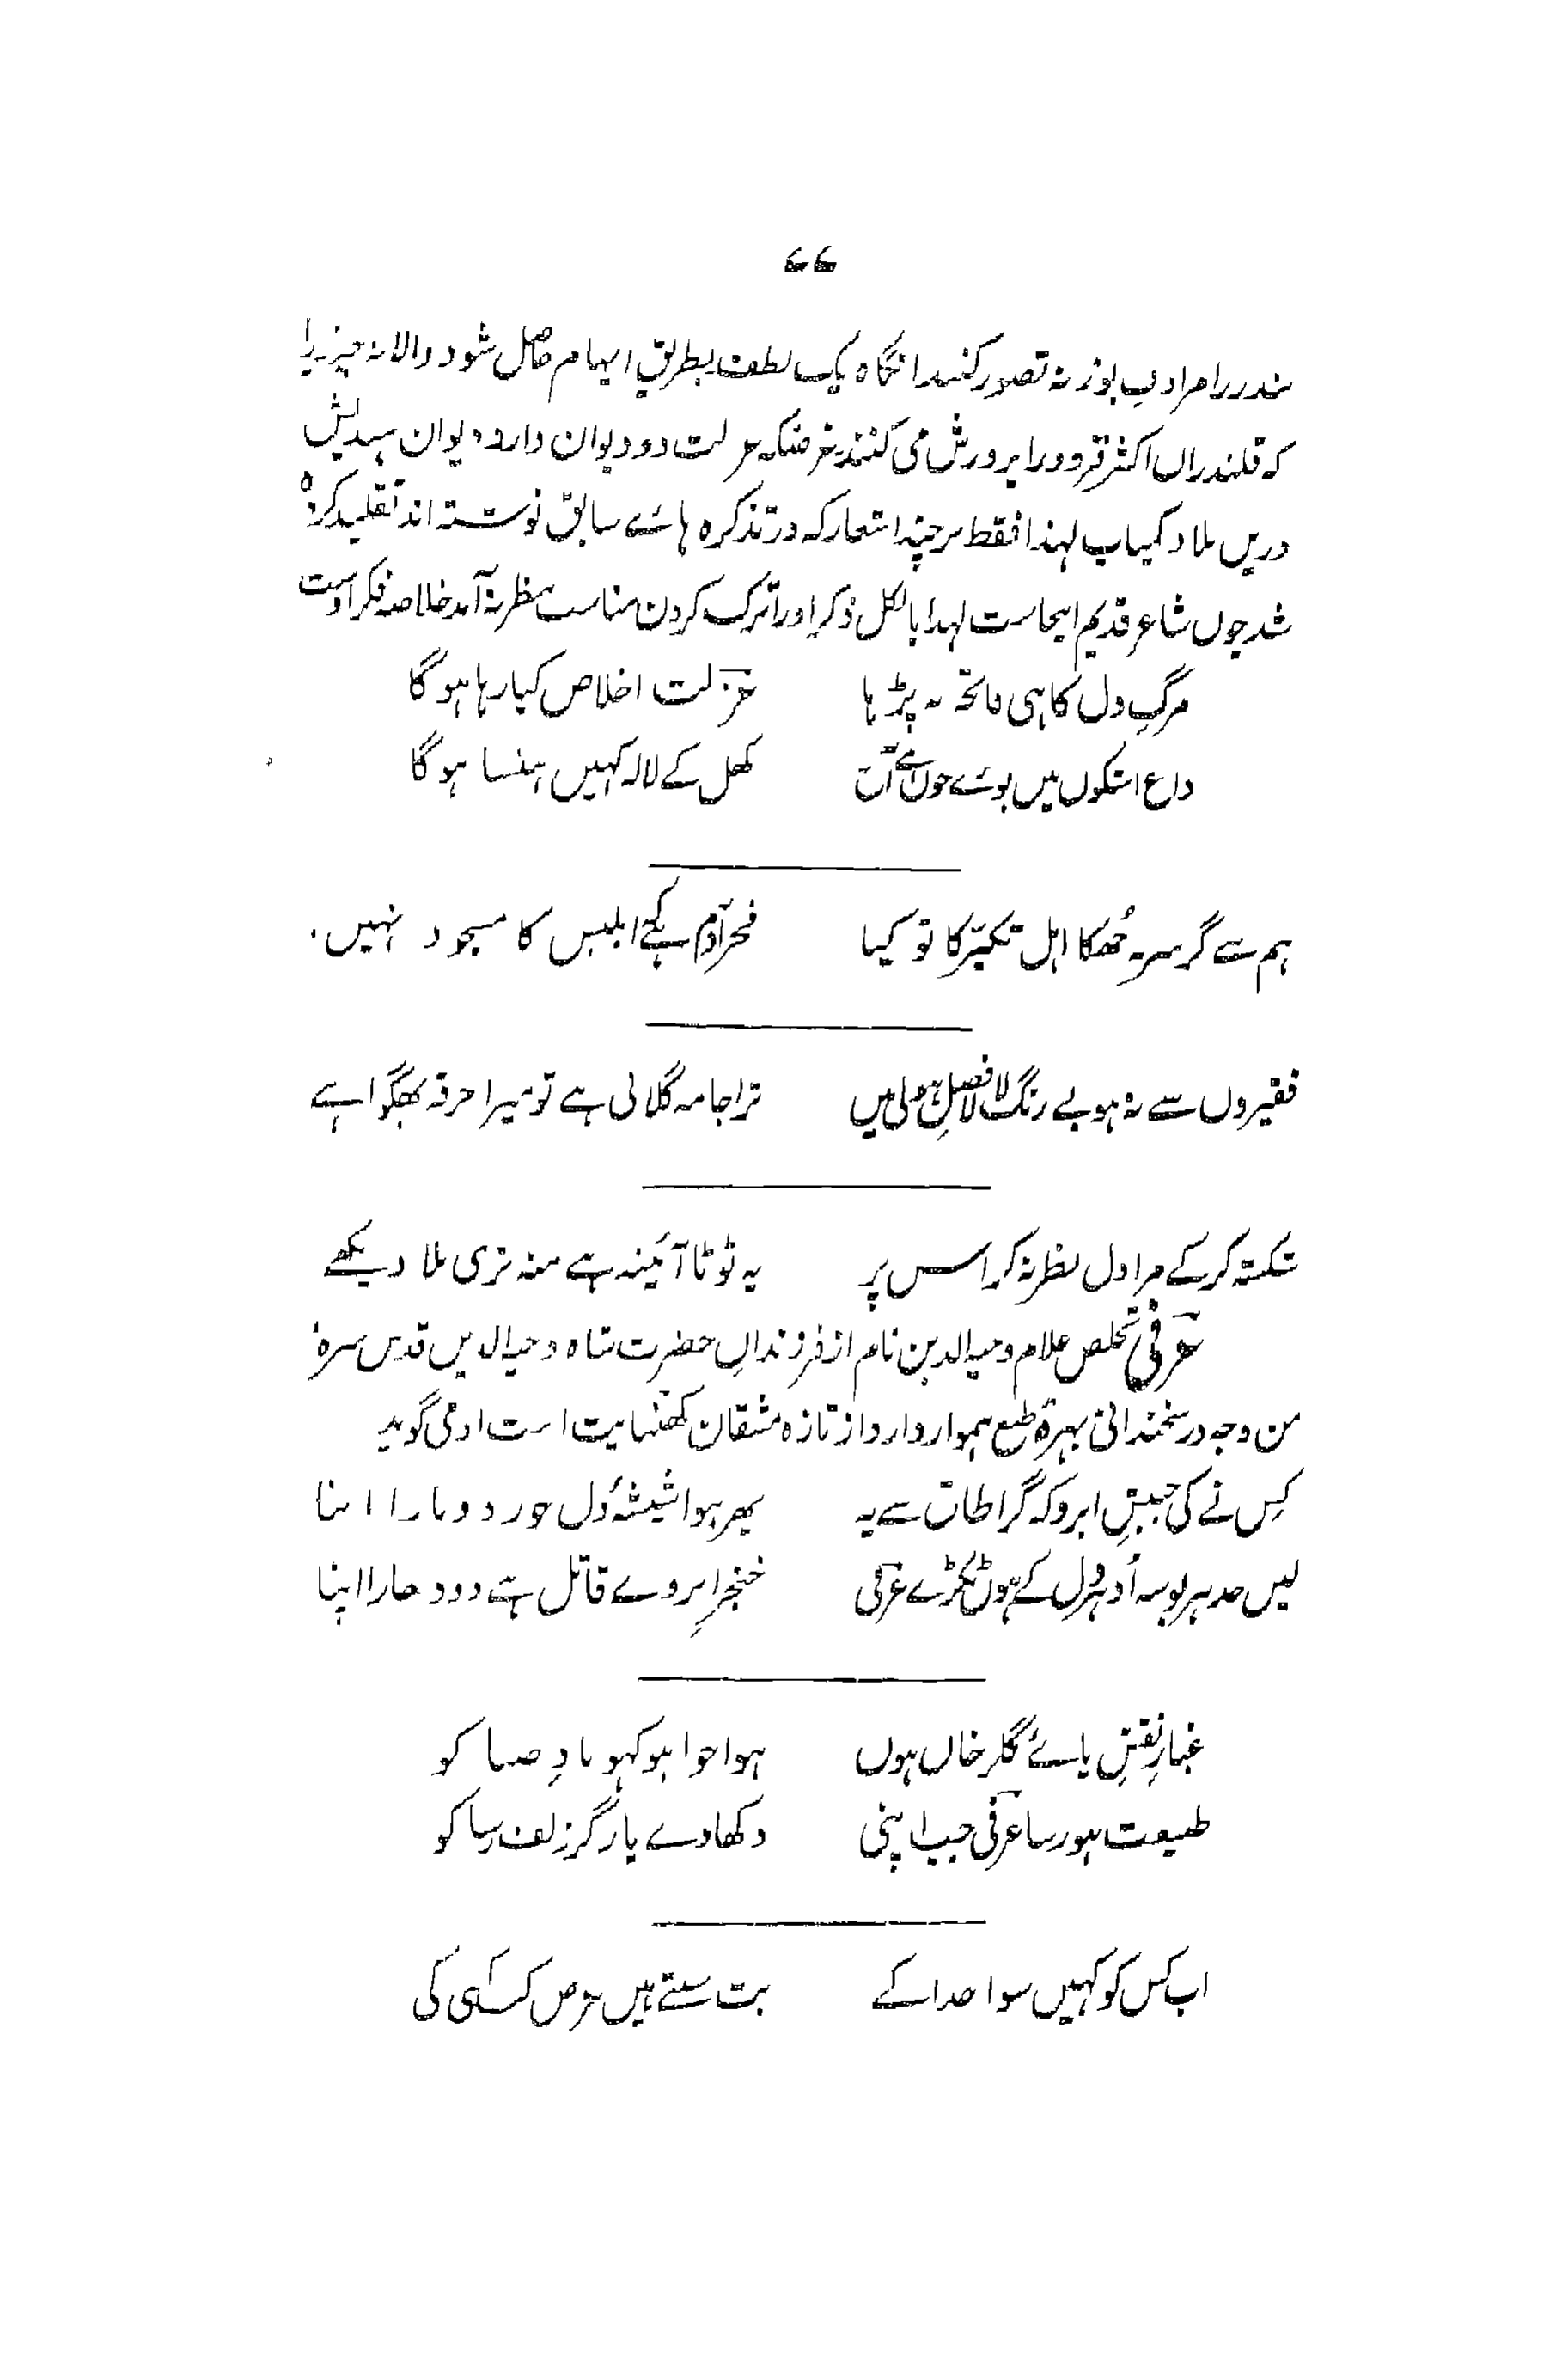 ۷۷
بندر را مرادب بوزنه تصور کنند انگاه یک لطف بطریق ایهام حاصل شود والا نه چیزیرا
که قلندراں اکثر قرود را پرورش می کنند غرضکه عزلت دو دیوان دارد دیوان ہندیش
دریں بلاد کمیاب لہذا فقط ہر چند اشعار که در تذکره ہائے سابق نوشته اند تقلید کرده
شد چوں شاعر قدیم اینجاست لہذا بالکل ذکر او را ترک کردن مناسب بنظر نه آمد خلاصه فکر اوست
مرگِ دل کا ہی فاتحہ نہ پڑہا عزلت اخلاص کیا رہا ہوگا
داغ اشکوں میں بوئے خوں ہے آج کھل کے لالہ کہیں ہنسا ہوگا
ہم سے گر سر نہ جُھکا اہل تکبّر کا تو کیا فخر آدم ہے کہ ابلیس کا مسجود نہیں
فقیروں سے نہ ہو بے رنگ لالا فصلِ ہولی میں ترا جامہ گلابی ہے تو میرا خرقہ بھگوا ہے
شکستہ کر کے مرا دل نظر نہ کر اس پر یہ ٹوٹا آئینہ ہے منہ تری بلا دیکھے
عرفی تخلص غلام وجیہ الدین نام از فرزندانِ حضرت شاہ وجیہ الدین قدس سرہٗ
من وجه در سخندانی بہرۂ طبع ہموار دارد از تازه مشقان است او می گوید
کس نے کی جنبشِ ابرو کہ گرا طاق سے یہ پھر ہوا شیشۂ دل خورد دوبارا اپنا
لیں نہ بوسہ دل کے ہوں ٹکڑے عرفی خنجر ابروے قاتل ہے دودھارا اپنا
غبارِ نقشِ پائے گلرخاں ہوں ہوا خوا ہو کہو بادِ صبا کو
طبیعت ہو رسا عرفی جب اپنی دکھا دے یار گر زلف رسا کو
اب کس کو کہیں سوا خدا کے بت سنتے ہیں عرض کب کسی کی